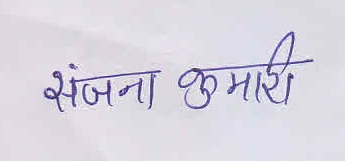 संजना कुमारी